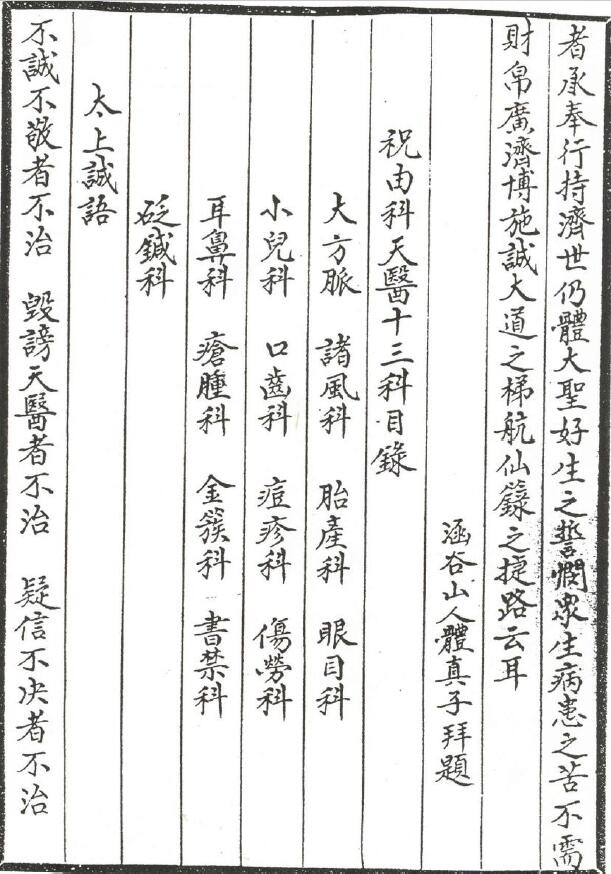 者承奉行持濟世仍體大聖好生之誓憫眾生病患之苦不需
財帛廣濟博施誠大道之梯航仙籙之捷路云耳
涵谷山人體真子拜題
祝由科天醫十三科目錄
大方脈 諸風科 胎產科 眼目科
小兒科 口齒科 痘疹科 傷勞科
耳鼻科 瘡腫科 金簇科 書禁科
砭鍼科
太上誠語
不誠不敬者不治 毀謗天醫者不治 疑信不决者不治